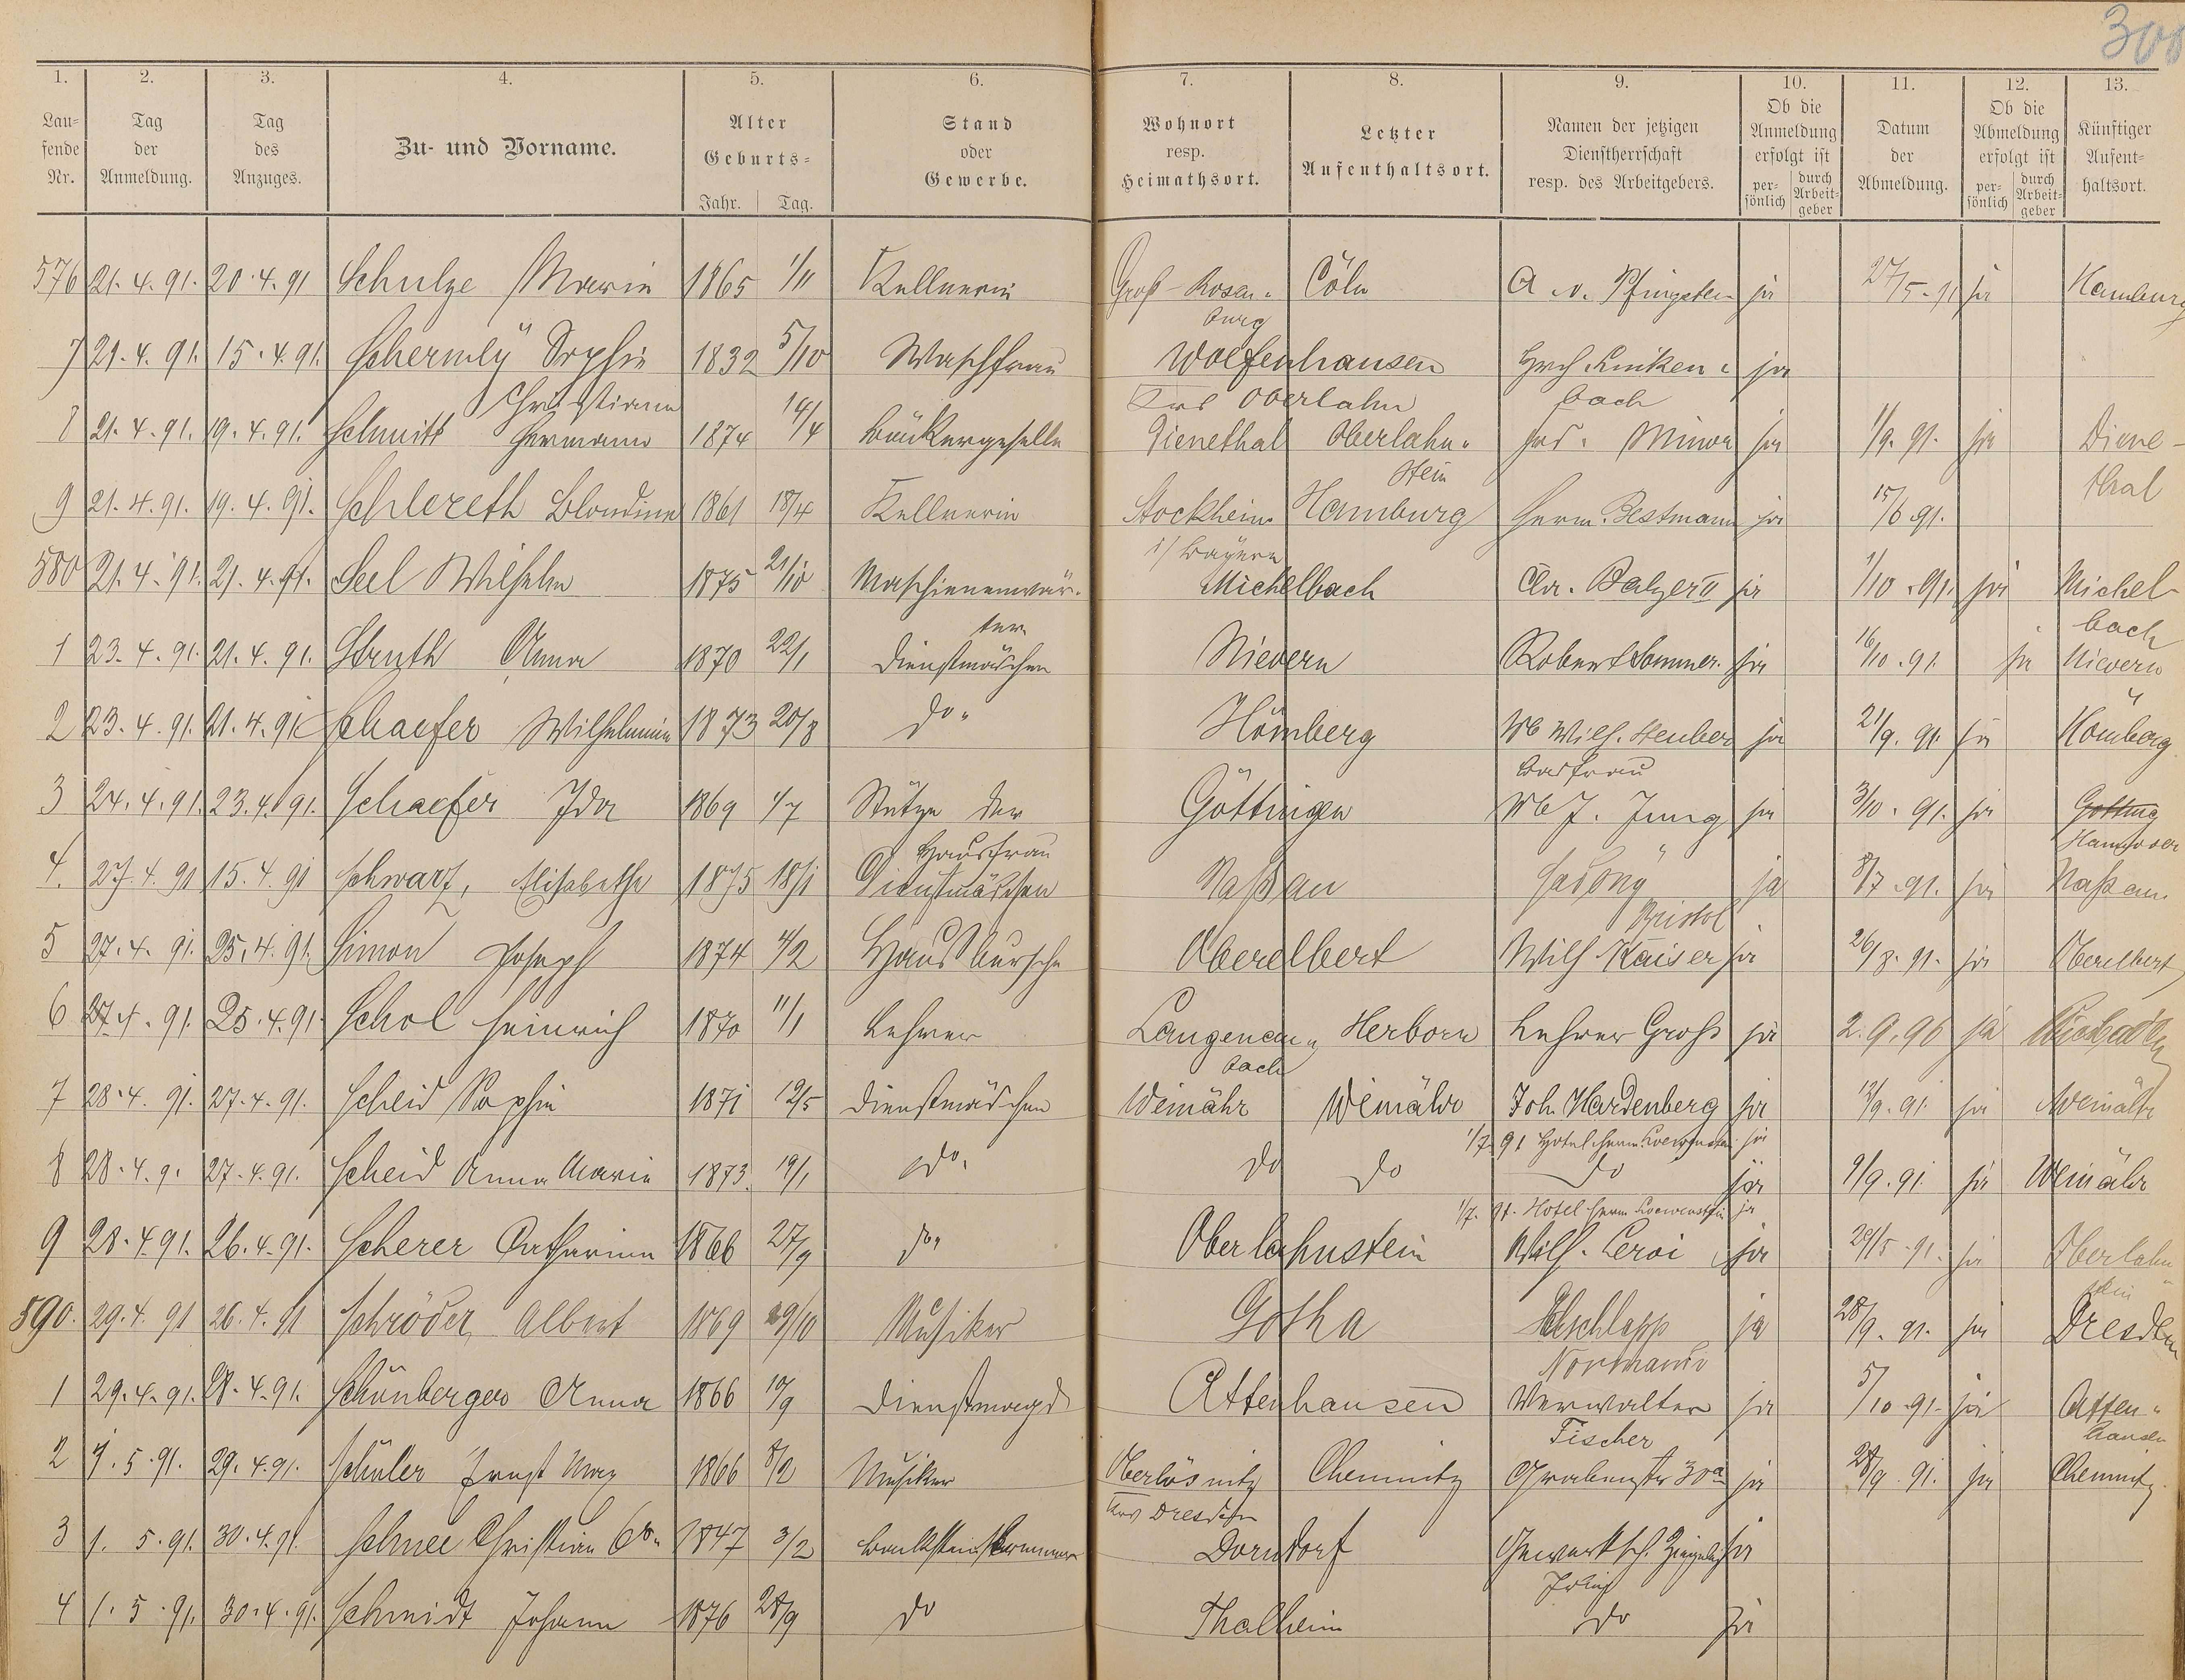 300
1. 2. 3. 4. 5. 6. 7. 8. 9. 10. 11. 12. 13.
Lau-
fende
Nr.
Tag
der
Anmeldung.
Tag
des
Anzuges.
Zu- und Vorname.
Alter
Geburts-
Jahr. Tag.
Stand
oder
Gewerbe.
Wohnort
resp.
Heimathsort.
Letzter
Aufenthaltsort.
Namen der jetzigen
Dienstherrschaft
resp. des Arbeitgebers.
Ob die
Anmeldung
erfolgt ist
per-
sönlich
durch
Arbeit-
geber
Datum
der
Abmeldung.
Ob die
Abmeldung
erfolgt ist
per-
sönlich
durch
Arbeit-
geber
Künftiger
Aufent-
haltsort.
576 21. 4. 91. 20. 4. 91 Schulze Marie 1865 1/11 Kellnerin Groß-Rosen- Cöln A. v. Pfingsten ja 27/5. 91 ja Hamburg
burg
7 21. 4. 91. 15. 4. 91. Sophie 1832 5/10 Waschfrau Wolfenhausen Hrch Linken- ja
Christiane Oberlahn bach
8 21. 4. 91. 19. 4. 91. Schmitt Hermann 1874 14/4 Bäckergeselle Dienethal Oberlahn- Jac. Minor ja 1/9. 91. ja Diene-
stein thal
9 21. 4. 91. 19. 4. 91. Schlereth Blondine 1861 18/4 Kellnerin Stockheim Hamburg Herm. Bestmann ja 15/6 91.
i/ Bayern
580 21. 4. 91. 21. 4. 91. Seel Wilhelm 1875 21/10 Maschienenwär- Michelbach Chr. Balzer II ja 1/10. 91. ja Michel-
ter bach
1 23. 4. 91. 21. 4. 91. Struth Anna 1870 22/1 Dienstmädchen Nievern Robert Sommer ja 16/10. 91. ja Nievern
2 23. 4. 91. 21. 4. 91 Schaefer Wilhelmine 1873 20/8 do. Hömberg Wb Wilh. Steuber ja 21/9. 91. ja Hömberg
Badfrau
3 24. 4. 91. 23. 4. 91. Schaefer Ida 1869 4/7 Stütze der Göttingen Wb J. Jung ja 3/10. 91. ja Götting
Hausfrau Hannover
4. 27. 4. 91 15. 4. 91 Schwarz, Elisabethe 1875 18/1 Dienstmädchen Naßau ja 8/7. 91. ja Naßau.
Bristol
5 27. 4. 91. 25. 4. 91. Simon Joseph 1874 4/2 Hausbursche Oberelbert Wilh Kaiser ja 26/8. 91. ja Oberelbert
6 27. 4. 91. 25. 4. 91. Schol Heinrich 1870 11/1 Lehrer Langenau- Herborn Lehrer Groß ja 2. 9. 96 ja Wiesbaden
bach
7 28. 4. 91. 27. 4. 91. Scheid Sophie 1871 12/5 Dienstmädchen Weinähr Weinähr Joh. Hardenberg ja 12/9. 91. ja Weinähr
1/7. 91 Hotel Herm Loewenstein ja
8 28. 4. 9. 27. 4. 91. Scheid Anna Marie 1873. 19/1 do. do do do ja 9/9. 91. ja Weinähr
1/7. 91. Hotel Herm Loewenstein ja
9 28. 4. 91. 26. 4. 91. Scherer Catharina 1866 27/9 do. Oberlahnstein Wilh. Leroi ja 29/5. 91. ja Oberlahn-
stein
590. 29. 4. 91 26. 4. 91 Schröder Albert 1869 29/10 Musiker Gotha ja 28/9. 91. ja Dresden
Normann
1 29. 4. 91. 28. 4. 91. Schönberger Anna 1866 19/9 Dienstmagd Attenhausen Verwalter ja 5/10. 91. ja Atten-
Fischer hausen
2 1. 5. 91. 29. 4. 91. Schüler Ernst Max 1866 8/2 Musiker Oberlösnitz Chemnitz Grabenstr 30a ja 28/9. 91. ja Chemnitz
Dresden
3 1. 5. 91. 30. 4. 91. Schnee Christian 1847 3/2 Backsteinbrenner Dorndorf Gewerksch. ja
4 1. 5. 91. 30. 4. 91. Schmidt Johann 1876 28/9 do Thalheim do ja